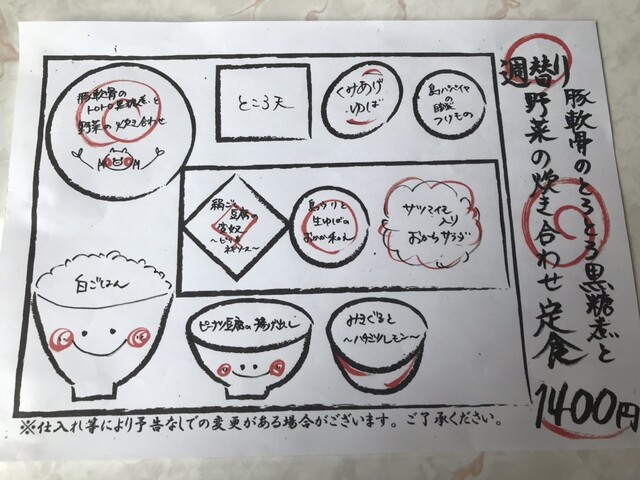 週替り
豚軟骨のとろとろ黒糖煮と
野菜の炊き合わせ 定食
1400円
豚軟骨の
トロトロ黒糖煮と
野菜の炊き合わせ
ところ天
くみあげ
ゆば
島パパイヤ
の
つけもの
絹ごし豆腐の
島ウリと
生ゆばの
おかか和え
サツマイモ
入り
おからサラダ
白ごはん
ピーナツ豆腐の揚げ出し
みきぐると
～ハチミツレモン～
※仕入れ等により予告なしでの変更がある場合がございます。ご了承ください。